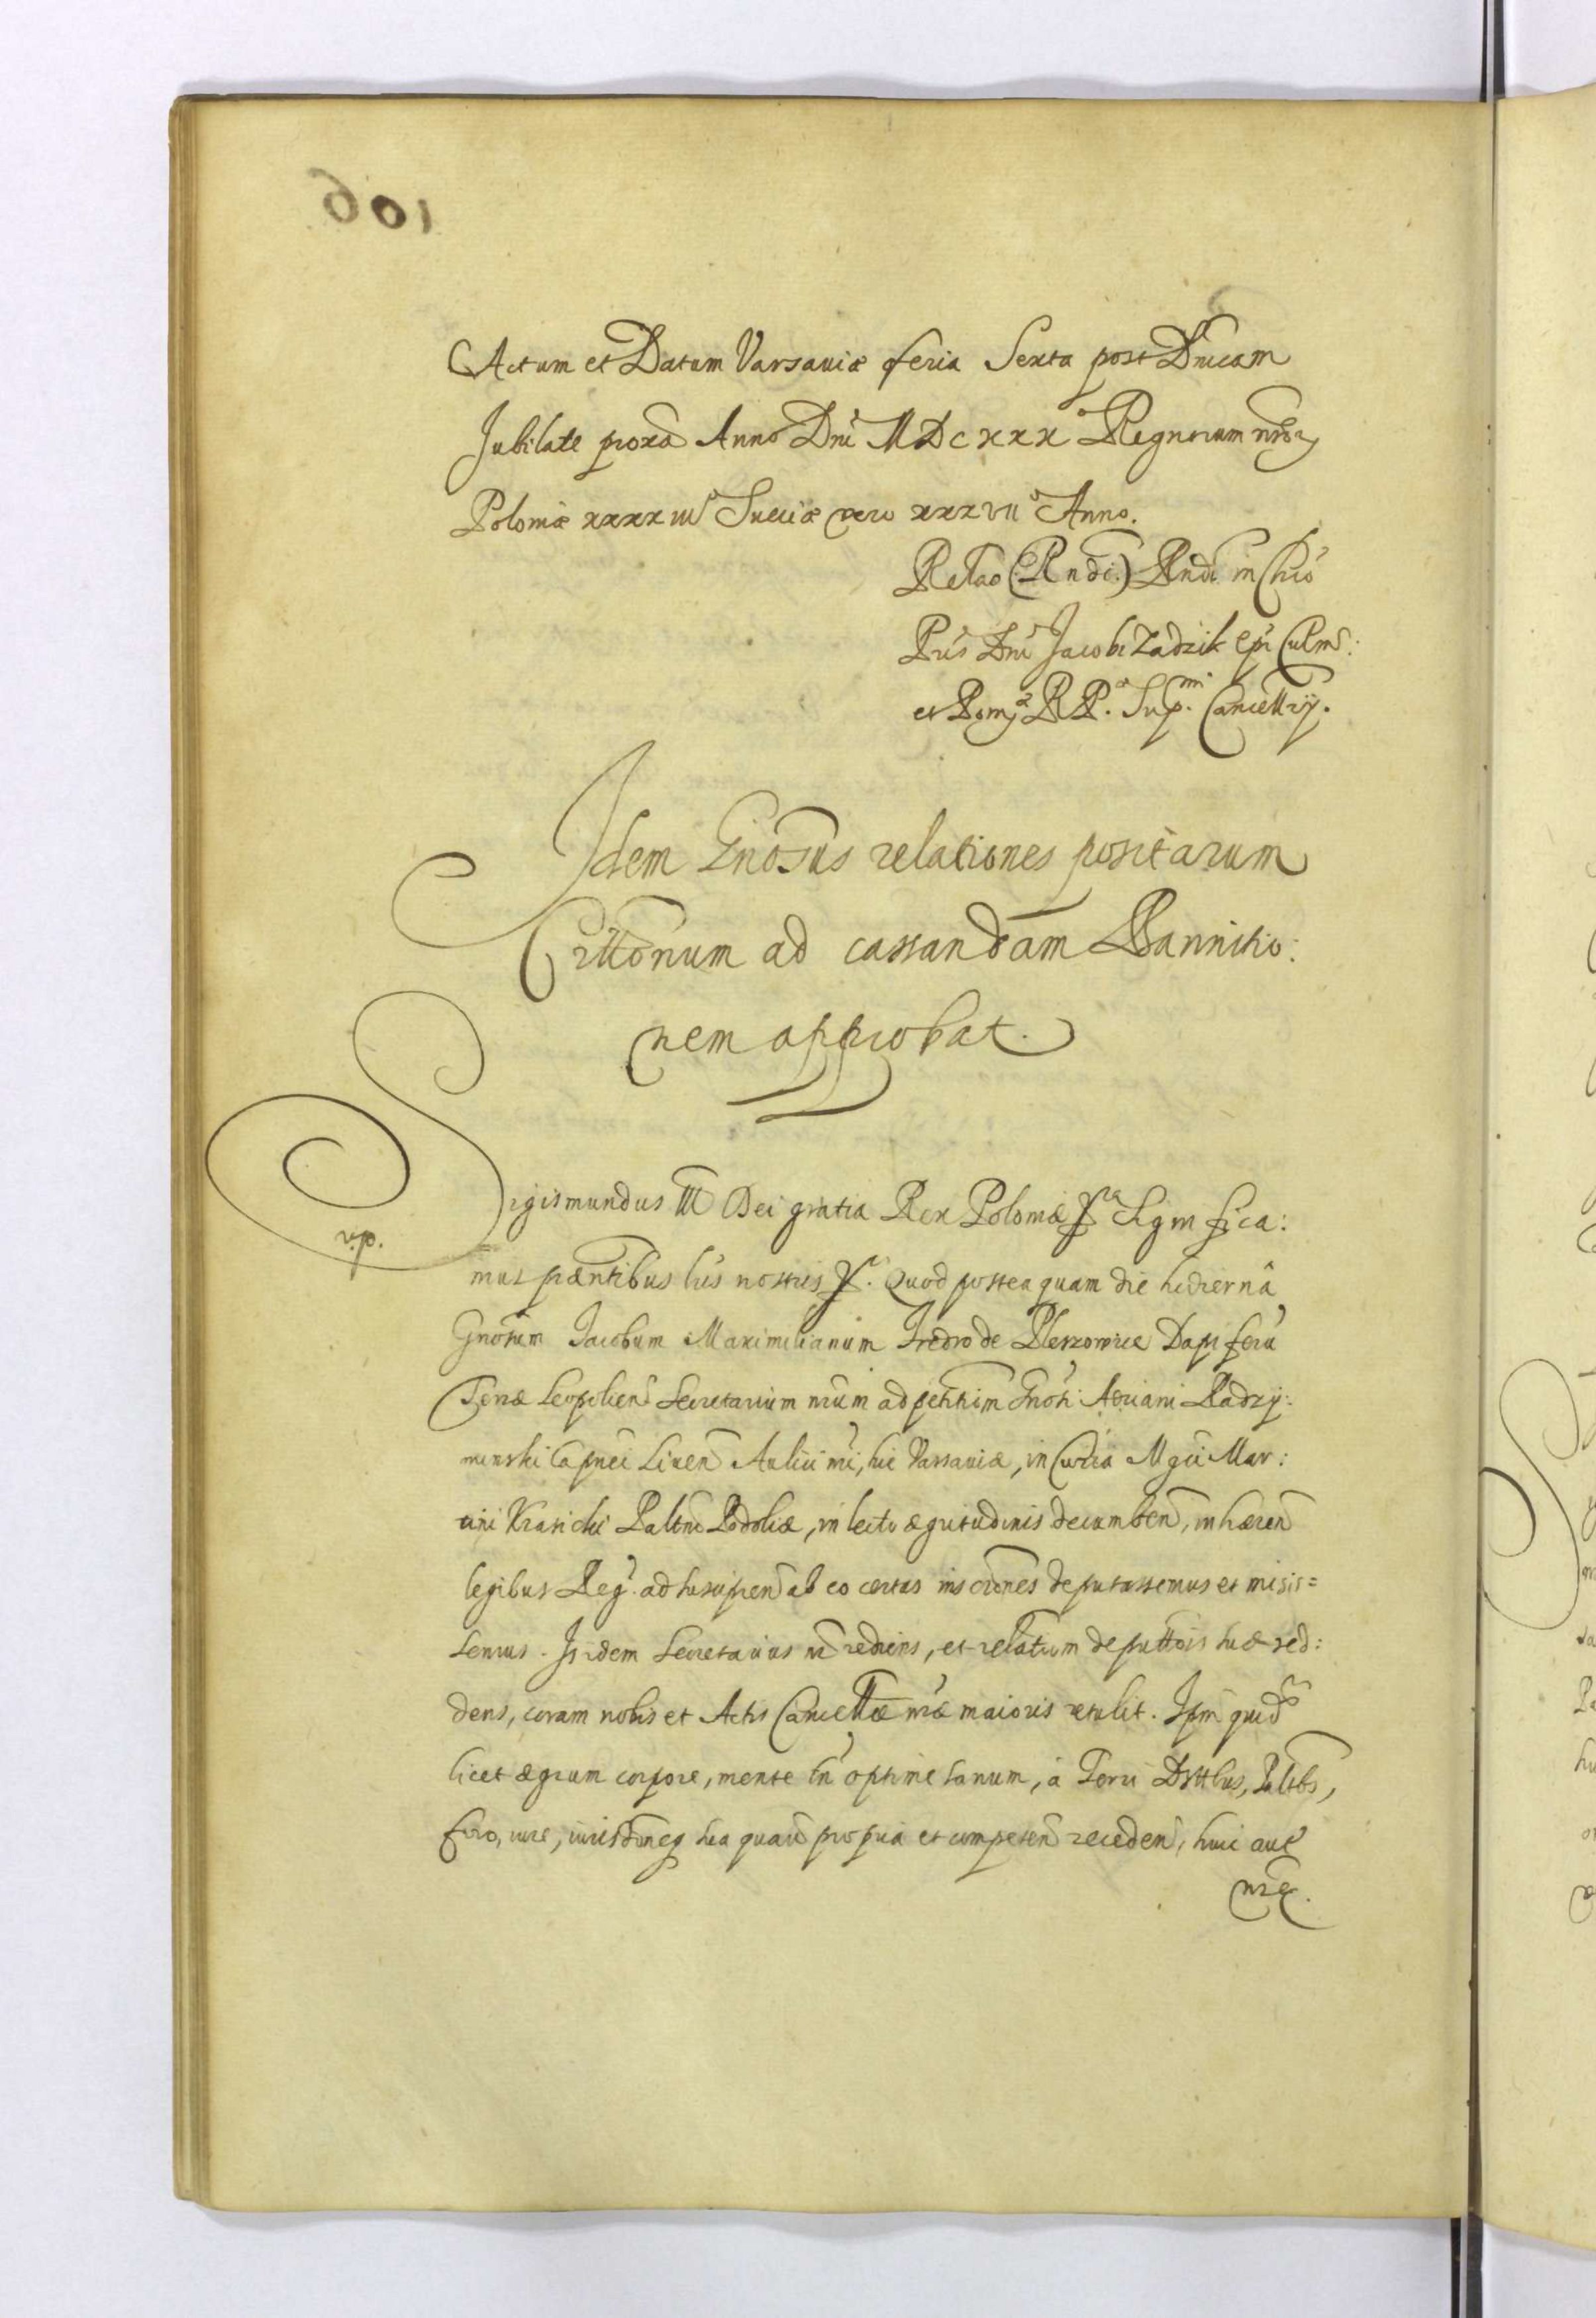 106
Actum et Datum Varsaviæ feria Sexta post Dnicam
Jubilate proxa Anno Dni MDCXXX Regnorum nror
Poloniæ xxxxiii Sueciæ vero xxxvii Anno.
Relao (Rndi) Rndi in Chro
Pris Dni Jacobi Zadzik Epi Culmen:
et Pom. R P. Sup. Cancellrij.
Idem Gnosus relationes positarum
Crittonum ad cassandam Bannitio:
nem approbat.
Sigismundus III Dei gratia Rex Poloniæ Significa:
v.p.
mus præntibus lris nostris. Quod postea quam die hodiernâ
Gnosum Jacobum Maximilianum Fredro de Pleszowice Dapiferu
Terræ Leopolien Secretarium nrum ad petitim Gnosi Adriani Radzy:
minski Capnei Liuen Aulici nri, hic Varsaviæ, in Curia Mgci Mar:
tini Krasicki Paltni Podoliæ, in lecto ægritudinis decumben, inhæren
legibus Reg. ad suscipien ab eo certas inscriones deputassemus et misis=
semus. Is idem Secretarius nr rediens, et relatiom deputtois suæ red:
dens, coram nobis et Actis Cancellæ nræ maioris retulit. Ipm quid
licet ægrum corpore, mente tn optime sanum, à Terri Dsttbus, Paltbs,
foro, iure, iurisdoneq sua quavis propria et competen receden, huic aut
nræ.